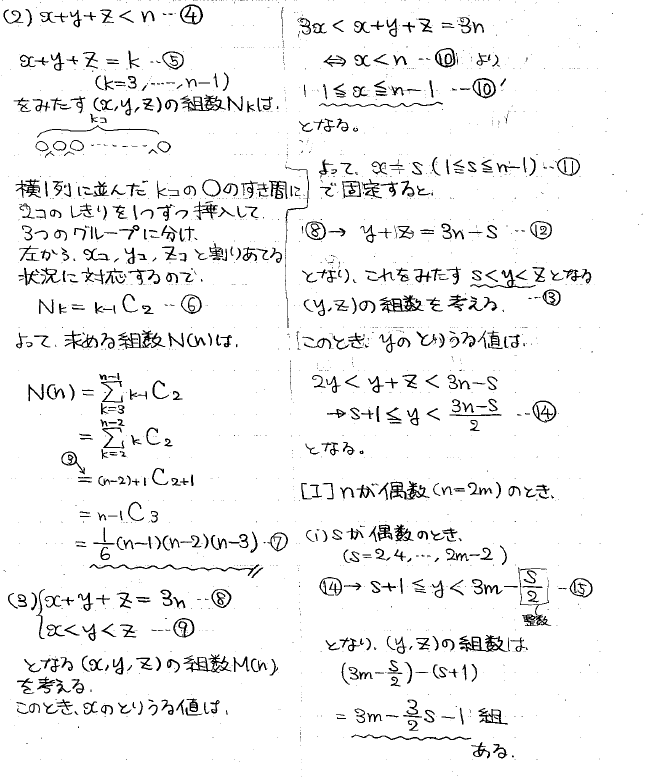 (2) x+y+z<n …④
x+y+z=k …⑤
(k=3, …, n-1)
をみたす(x,y,z)の組数Nkは、
kコ
○○○ --------- ○
横1列に並んだkコの○のすき間に
2コのしきりを1つずつ挿入して
3つのグループに分け、
左から、xコ, yコ, zコと割りあてる
状況に対応するので、
Nk = k-1C2 …⑥
よって、求める組数N(n)は、
N(n) = Σ[k=3, n-1] k-1C2
= Σ[k=2, n-2] kC2
③
= (n-2)+1C2+1
= n-1C3
= 1/6 (n-1)(n-2)(n-3) …⑦
(3) { x+y+z=3n …⑧
x<y<z …⑨
となる(x,y,z)の組数M(n)
を考える。
このとき、xのとりうる値は、
3x < x+y+z = 3n
⇔ x<n …⑩ より
1≦x≦n-1 …⑩'
となる。
よって、x=s (1≦s≦n-1) …⑪
で固定すると、
⑧→ y+z=3n-s …⑫
となり、これをみたす s<y<z となる
…⑬
(y,z)の組数を考える。
このとき、yのとりうる値は、
2y < y+z < 3n-s
→ s+1≦y< (3n-s)/2 …⑭
となる。
[I] nが偶数(n=2m)のとき、
(i) sが偶数のとき、
(s=2,4,…,2m-2)
⑭→ s+1≦y<3m- s/2 …⑮
整数
となり、(y,z)の組数は、
(3m- s/2)-(s+1)
= 3m- 3/2 s-1 組
ある。